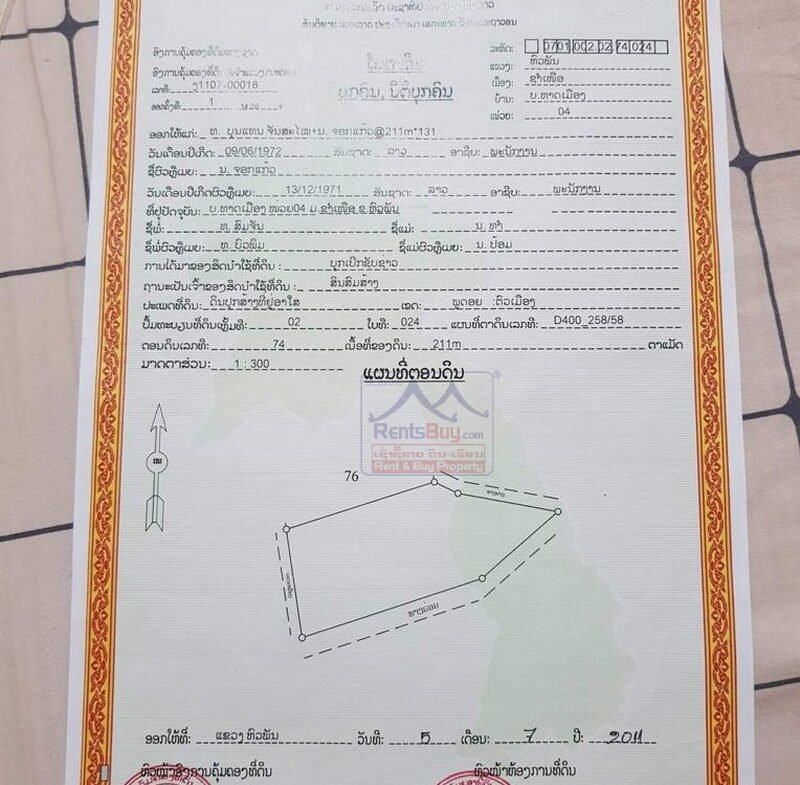 ສັນຕິພາບ ເອກະລາດ ປະຊາທິປະໄຕ ເອກະພາບ ວັດທະນາຖາວອນ
ອົງການຄຸ້ມຄອງທີ່ດິນແຫ່ງຊາດ
ລະຫັດ: 07 01 002 02 74 024
ອົງການຄຸ້ມຄອງທີ່ດິນ
ແຂວງ: ຫົວພັນ
ເລກທີ: ງ1107-00018
ບຸກຄົນ, ນິຕິບຸກຄົນ
ເມືອງ: ຊຳເໜືອ
ອອກຄັ້ງທີ: 1
ບ້ານ: ບ.ທາດເມືອງ
ໜ່ວຍ: 04
ອອກໃຫ້ແກ່: ທ. ບຸນແທນ ຈັນສະໄໝ+ນ. ຈອກແກ້ວ@211m*131
ວັນເດືອນປີເກີດ: 09/06/1972 ສັນຊາດ: ລາວ ອາຊີບ: ພະນັກງານ
ຊື່ຜົວຫຼືເມຍ: ນ. ຈອກແກ້ວ
ວັນເດືອນປີເກີດຜົວຫຼືເມຍ: 13/12/1971 ສັນຊາດ: ລາວ ອາຊີບ: ພະນັກງານ
ທີ່ຢູ່ປັດຈຸບັນ: ບ.ທາດເມືອງ ໜ່ວຍ04 ມ.ຊຳເໜືອ ຂ.ຫົວພັນ
ຊື່ພໍ່: ທ. ສົມຈັນ ຊື່ແມ່: ນ. ທຳ
ຊື່ພໍ່ຜົວຫຼືເມຍ: ທ. ບົວພິມ ຊື່ແມ່ຜົວຫຼືເມຍ: ນ. ປ້ອມ
ການໄດ້ມາຂອງສິດນຳໃຊ້ທີ່ດິນ: ບຸກເບີກຊັບຊາວ
ຖານະເປັນເຈົ້າຂອງສິດນຳໃຊ້ທີ່ດິນ: ສິນສົມສ້າງ
ປະເພດທີ່ດິນ: ດິນປຸກສ້າງທີ່ຢູ່ອາໃສ ເຂດ: ພູດອຍ :ຕົວເມືອງ
ປຶ້ມທະບຽນທີ່ດິນເຫຼັ້ມທີ: 02 ໃບທີ: 024 ແຜນທີ່ຕາດິນເລກທີ: D400_258/58
ຕອນດິນເລກທີ: 74 ເນື້ອທີ່ຂອງດິນ: 211m ຕາແມັດ
ມາດຕາສ່ວນ: 1 : 300
ແຜນທີ່ຕອນດິນ
RentsBuy.com
ເຊົ່າຊື້ຂາຍ ດິນ-ເຮືອນ
Rent & Buy Property
76
ທາງອ້ອມ
ອອກໃຫ້ທີ່: ແຂວງ ຫົວພັນ ວັນທີ: 5 ເດືອນ: 7 ປີ: 2011
ຫົວໜ້າອົງການຄຸ້ມຄອງທີ່ດິນ ຫົວໜ້າຫ້ອງການທີ່ດິນ